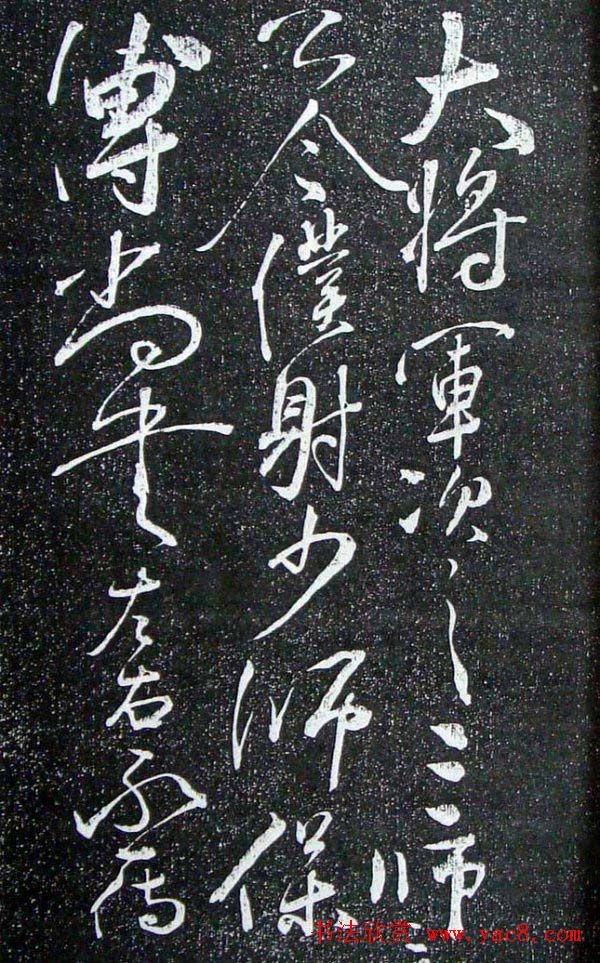 大將軍次之三師三
公令僕射少師保
傅尚書左右丞
书法欣赏 www.yac8.com